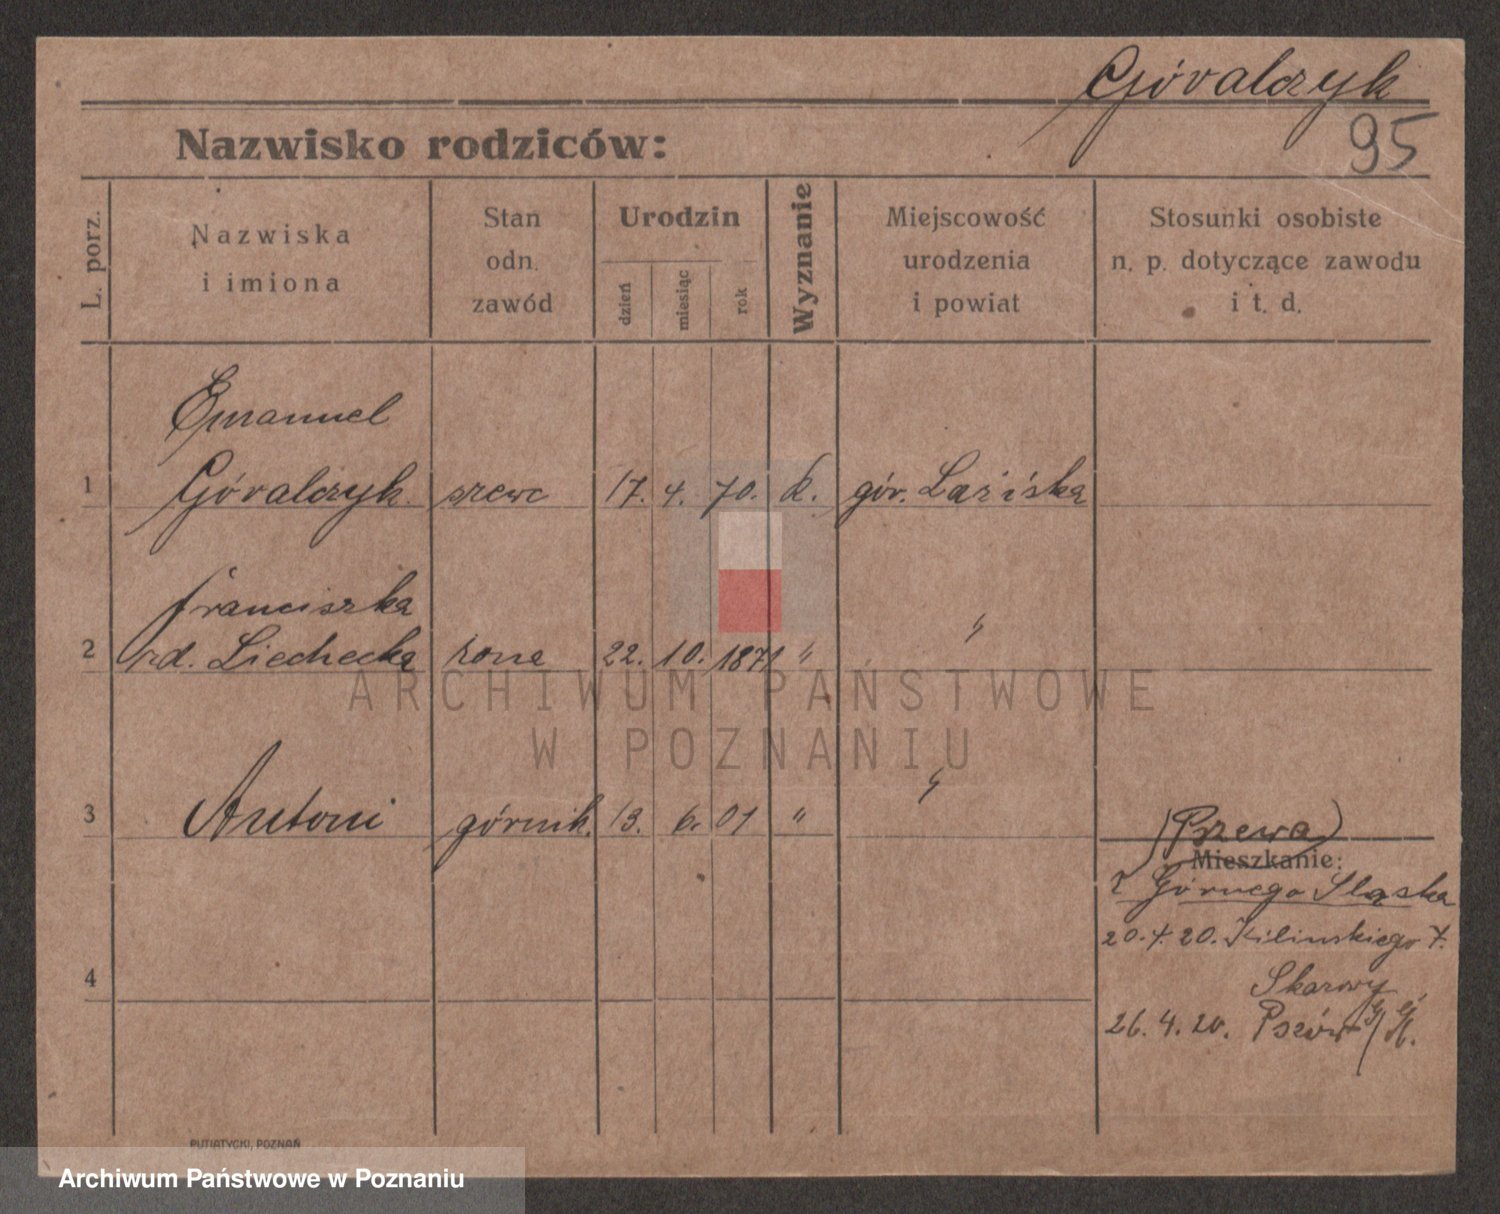 Góralczyk
Nazwisko rodziców:
95
L. porz.
Nazwiska
i imiona
Stan
odn.
zawód
Urodzin
dzień
miesiąc
rok
Wyznanie
Miejscowość
urodzenia
i powiat
Stosunki osobiste
n. p. dotyczące zawodu
i t. d.
Emanuel
1 Góralczyk szewc 17. 4. 70. k. gór. Laziska
Franciszka
2 rd. Liechecka żona 22. 10. 1871 " "
3 Antoni górnik. 13. 6. 01 " "
(Pszewa)
Mieszkanie:
z Górnego Sląska
20.4.20. Kilinskiego 7.
4
26. 4. 20. Pszów G/Śl.
PUTIATYCKI, POZNAŃ
ARCHIWUM PAŃSTWOWE
W POZNANIU
Archiwum Państwowe w Poznaniu